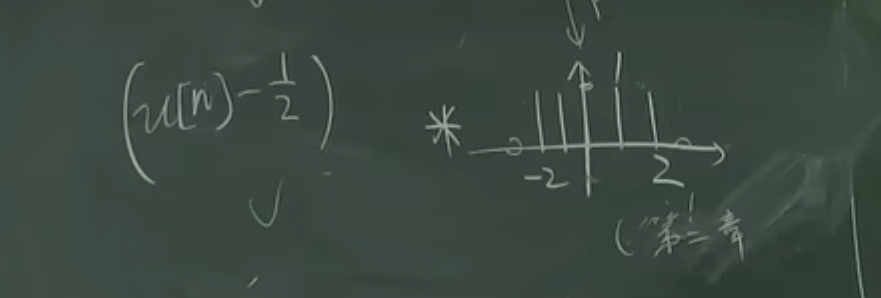 (u[n]-1/2) *
-2 2
(第二章